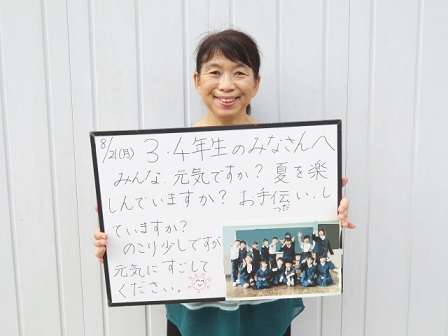 8/21(月) 3・4年生のみなさんへ
みんな元気ですか?夏を楽
しんでいますか?お手伝い、し
つだ
ていますか?
のこり少しですが
元気にすごして
ください。